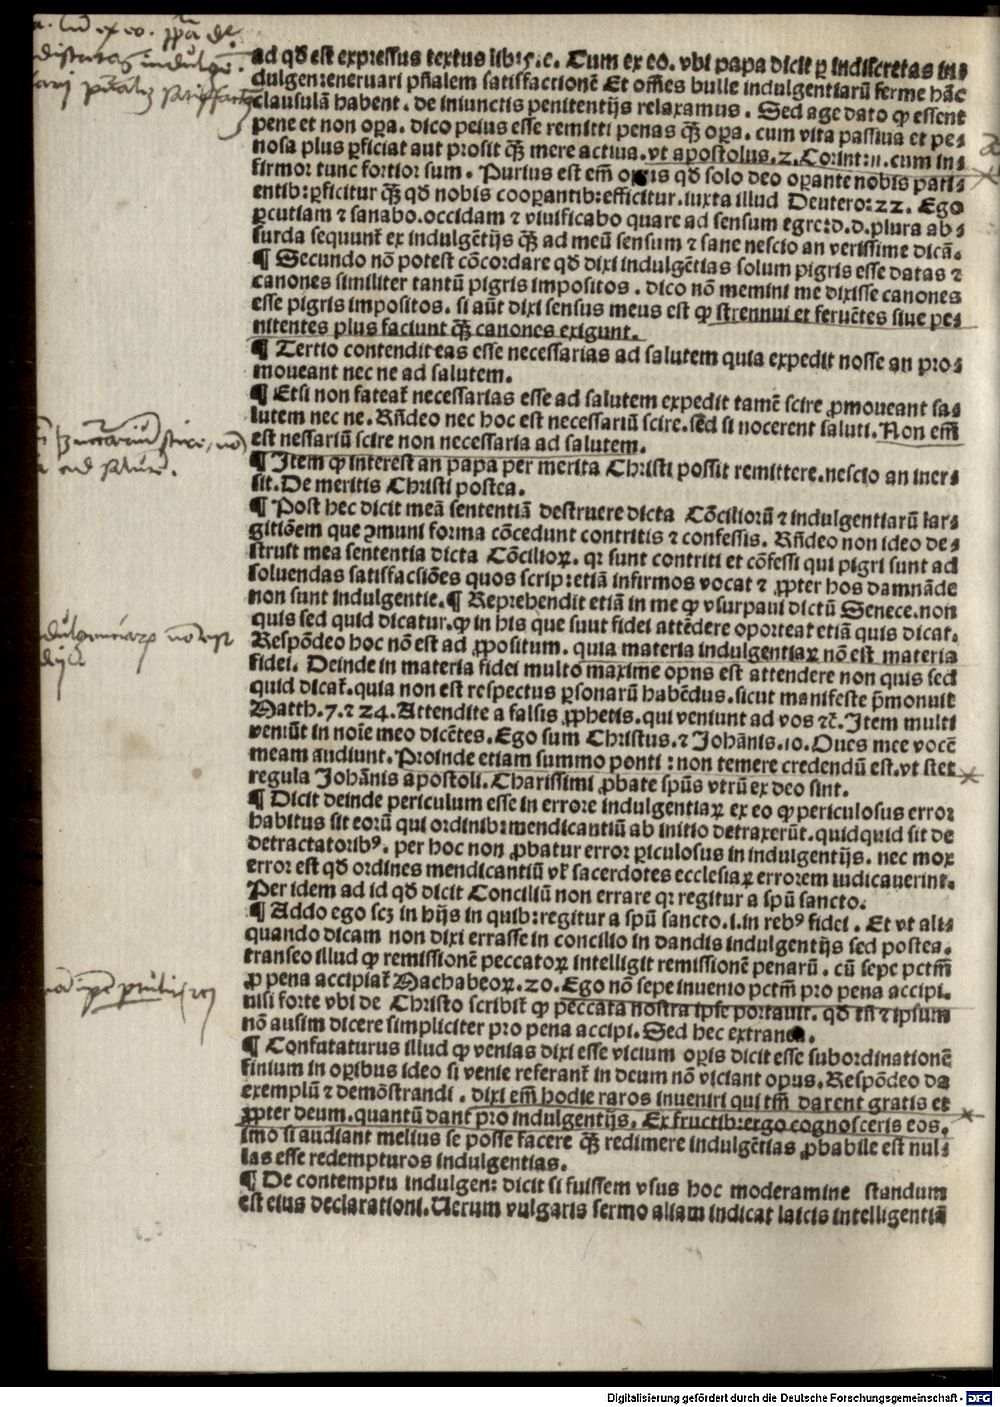 ad qd̄ est expressus textus lib:5.c. Cum ex eo. vbi papa dicit ꝑ indiscretas in⸗
dulgen:eneruari pn̄alem satisfactionē Et om̄es bulle indulgentiarū ferme hāc
clausulā habent. de iniunctis penitentijs relaxamus. Sed age dato ꝙ essent
pene et non oꝑa. dico peius esse remitti penas qꝫ̄ oꝑa. cum vita passiua et pe⸗
nosa plus ꝑficiat aut prosit qꝫ̄ mere actiua. vt apostolus. 2. Corint:11. cum in⸗
firmor tunc fortior sum. Purius est em̄ opus qd̄ solo deo oꝑante nobis pati⸗
entib:ꝑficitur qꝫ̄ qd̄ nobis cooꝑantib:efficitur. iuxta illud Deutero:22. Ego
ꝑcutiam ⁊ sanabo. occidam ⁊ viuificabo quare ad sensum egre:d.d. plura ab⸗
surda sequunt᷑ ex indulgētijs qꝫ̄ ad meū sensum ⁊ sane nescio an verissime dicā.
¶ Secundo nō potest cōcordare qd̄ dixi indulgētias solum pigris esse datas ⁊
canones similiter tantū pigris impositos. dico nō memini me dixisse canones
esse pigris impositos. si aūt dixi sensus meus est ꝙ strennui et feruētes siue pe⸗
nitentes plus faciunt qꝫ̄ canones exigunt.
¶ Tertio contendit eas esse necessarias ad salutem quia expedit nosse an pro⸗
moueant nec ne ad salutem.
¶ Etsi non fateat᷑ necessarias esse ad salutem expedit tamē scire ꝓmoueant sa⸗
lutem nec ne. Rn̄deo nec hoc est necessariū scire. sed si nocerent saluti. Non em̄
est nessariū scire non necessaria ad salutem.
¶ Item ꝙ interest an papa per merita Christi possit remittere. nescio an iner⸗
sit. De meritis Christi postea.
¶ Post hec dicit meā sententiā destruere dicta Cōciliorū ⁊ indulgentiarū lar⸗
gitiōem que ꝯmuni forma cōcedunt contritis ⁊ confessis. Rn̄deo non ideo de⸗
struit mea sententia dicta Cōcilioꝝ. qꝛ sunt contriti et cōfessi qui pigri sunt ad
soluendas satisfactiōes quos scrip:etiā infirmos vocat ⁊ ꝓpter hos damnāde
non sunt indulgentie. ¶ Reprehendit etiā in me ꝙ vsurpaui dictū Senece. non
quis sed quid dicatur. ꝙ in his que sunt fidei attēdere oporteat etiā quis dicat.
Respōdeo hoc nō est ad ꝓpositum. quia materia indulgentiaꝝ nō est materia
fidei. Deinde in materia fidei multo maxime opus est attendere non quis sed
quid dicat᷑. quia non est respectus ꝑsonarū habēdus. sicut manifeste p̄monuit
Matth. 7. ⁊ 24. Attendite a falsis ꝓphetis. qui veniunt ad vos ⁊c̄. Item multi
veniūt in noīe meo dicētes. Ego sum Christus. ⁊ Johānis. 10. Oues mee vocē
meam audiunt. Proinde etiam summo ponti: non temere credendū est. vt stet
regula Johānis apostoli. Charissimi ꝓbate spūs vtrū ex deo sint.
¶ Dicit deinde periculum esse in errore indulgentiaꝝ ex eo ꝙ periculosus error
habitus sit eorū qui ordinib:mendicantiū ab initio detraxerūt. quidquid sit de
detractatorib⁹. per hoc non ꝓbatur error ꝑiculosus in indulgentijs. nec mox
error est qd̄ ordines mendicantiū vl᷑ sacerdotes ecclesiaꝝ errorem iudicauerint.
Per idem ad id qd̄ dicit Conciliū non errare qꝛ regitur a spū sancto.
¶ Addo ego scꝫ in hijs in quib:regitur a spū sancto. i. in reb⁹ fidei. Et vt ali⸗
quando dicam non dixi errasse in concilio in dandis indulgentijs sed postea.
transeo illud ꝙ remissionē peccatoꝝ intelligit remissionē penarū. cū sepe pctm̄
ꝓ pena accipiat᷑ Machabeoꝝ. 20. Ego nō sepe inuenio pctm̄ pro pena accipi.
nisi forte vbi de Christo scribit᷑ ꝙ peccata nostra ipse portauit. qd̄ tn̄ ⁊ ipsum
nō ausim dicere simpliciter pro pena accipi. Sed hec extranea.
¶ Confutaturus illud ꝙ venias dixi esse vicium oꝑis dicit esse subordinationē
finium in oꝑibus ideo si venie referant᷑ in deum nō viciant opus. Respōdeo da
exemplū ⁊ demōstrandi. dixi em̄ hodie raros inueniri qui tm̄ darent gratis et
ꝓpter deum. quantū dant pro indulgentijs. Ex fructib:ergo cognosceris eos.
imo si audiant melius se posse facere qꝫ̄ redimere indulgētias ꝓbabile est nul⸗
las esse redempturos indulgentias.
¶ De contemptu indulgen: dicit si fuissem vsus hoc moderamine standum
est eius declarationi. Uerum vulgaris sermo aliam indicat laicis intelligentiā
Digitalisierung gefördert durch die Deutsche Forschungsgemeinschaft - DFG